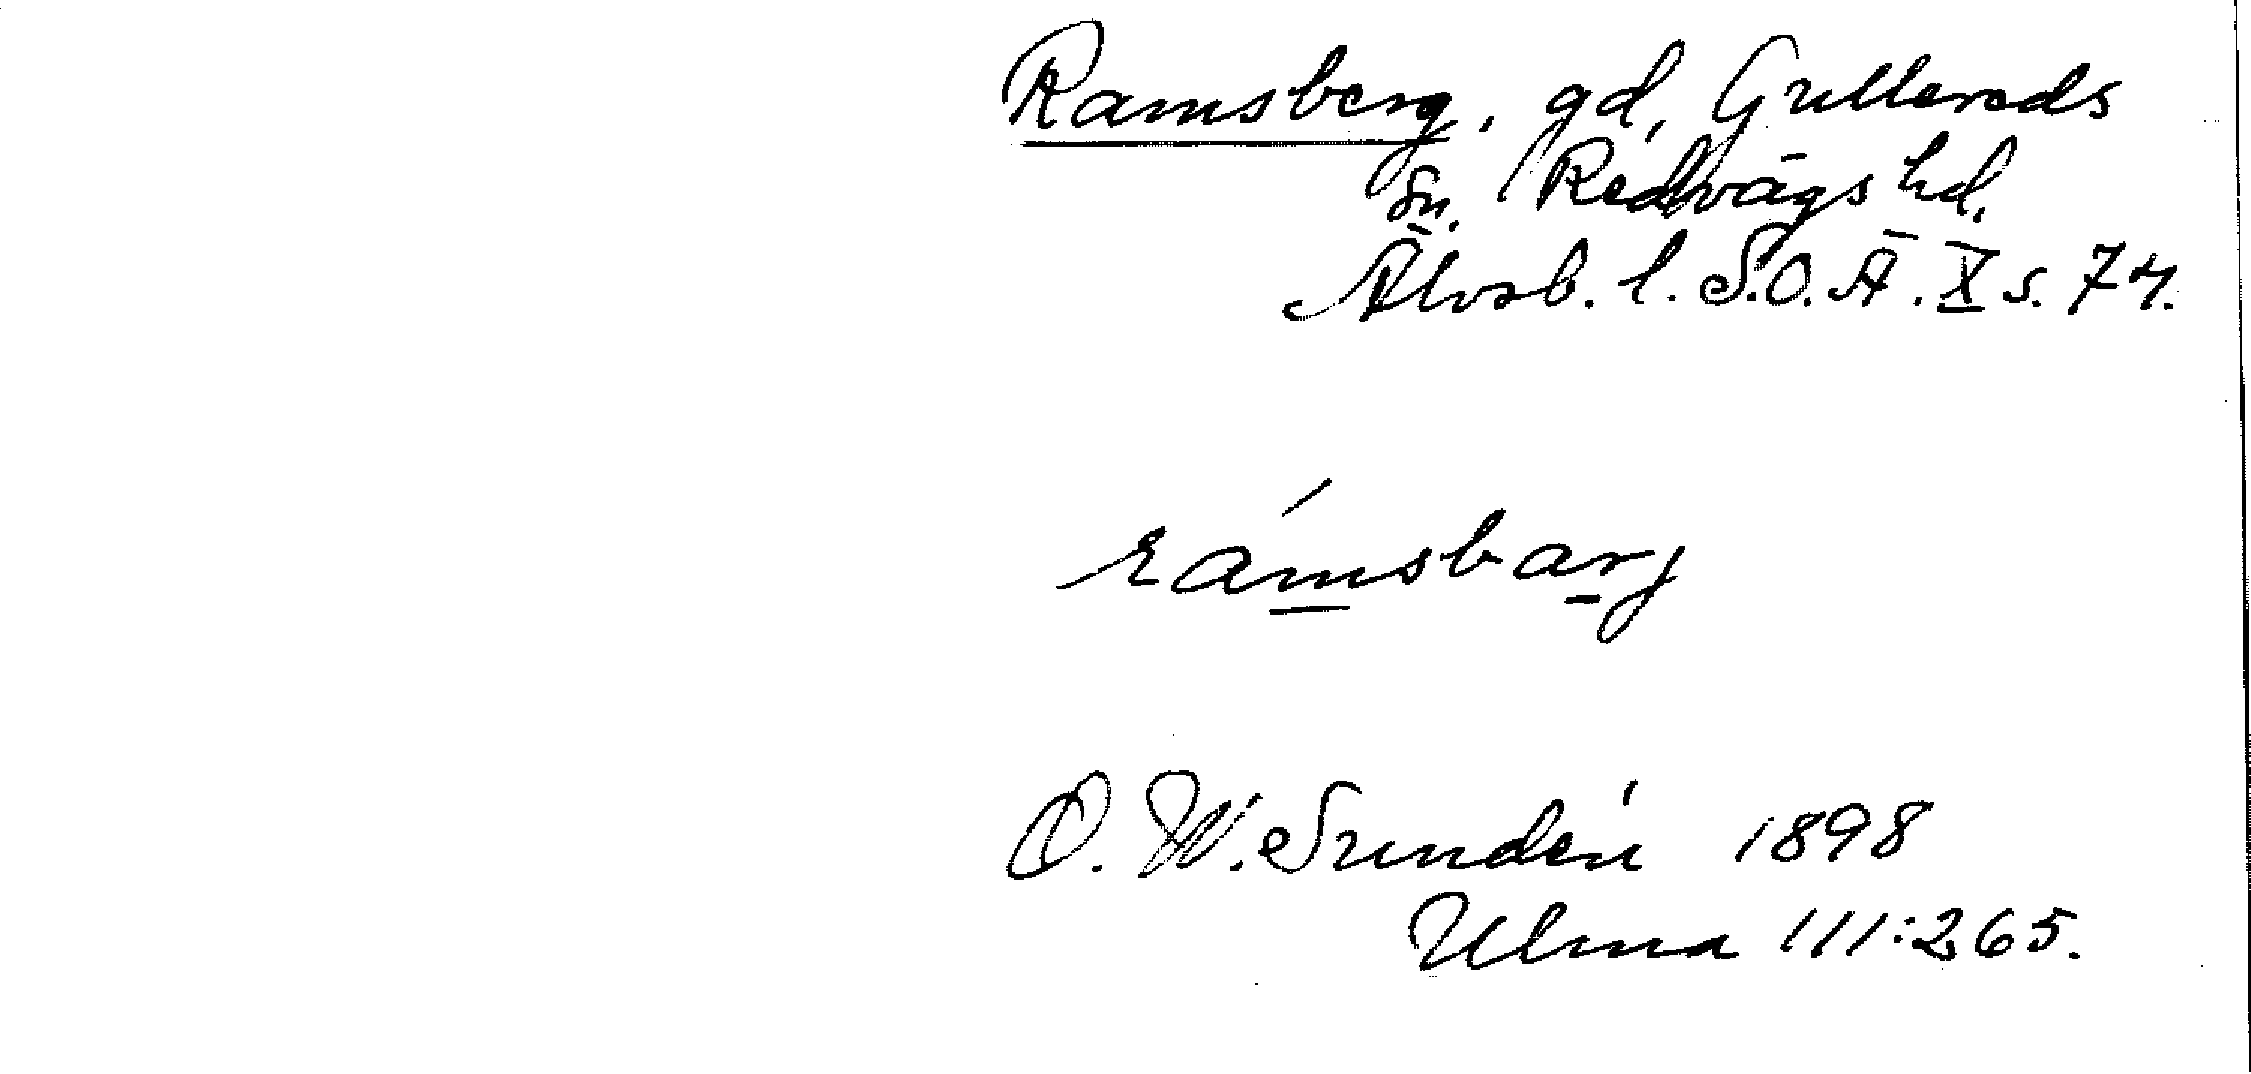 Ramsberg, gd, Gullereds
sn. Redvägs hd.
Älvsb. l. S.O.Ä. X s. 74.
rámsbarj
O. W. Sundén 1898
Ulma 111:265.